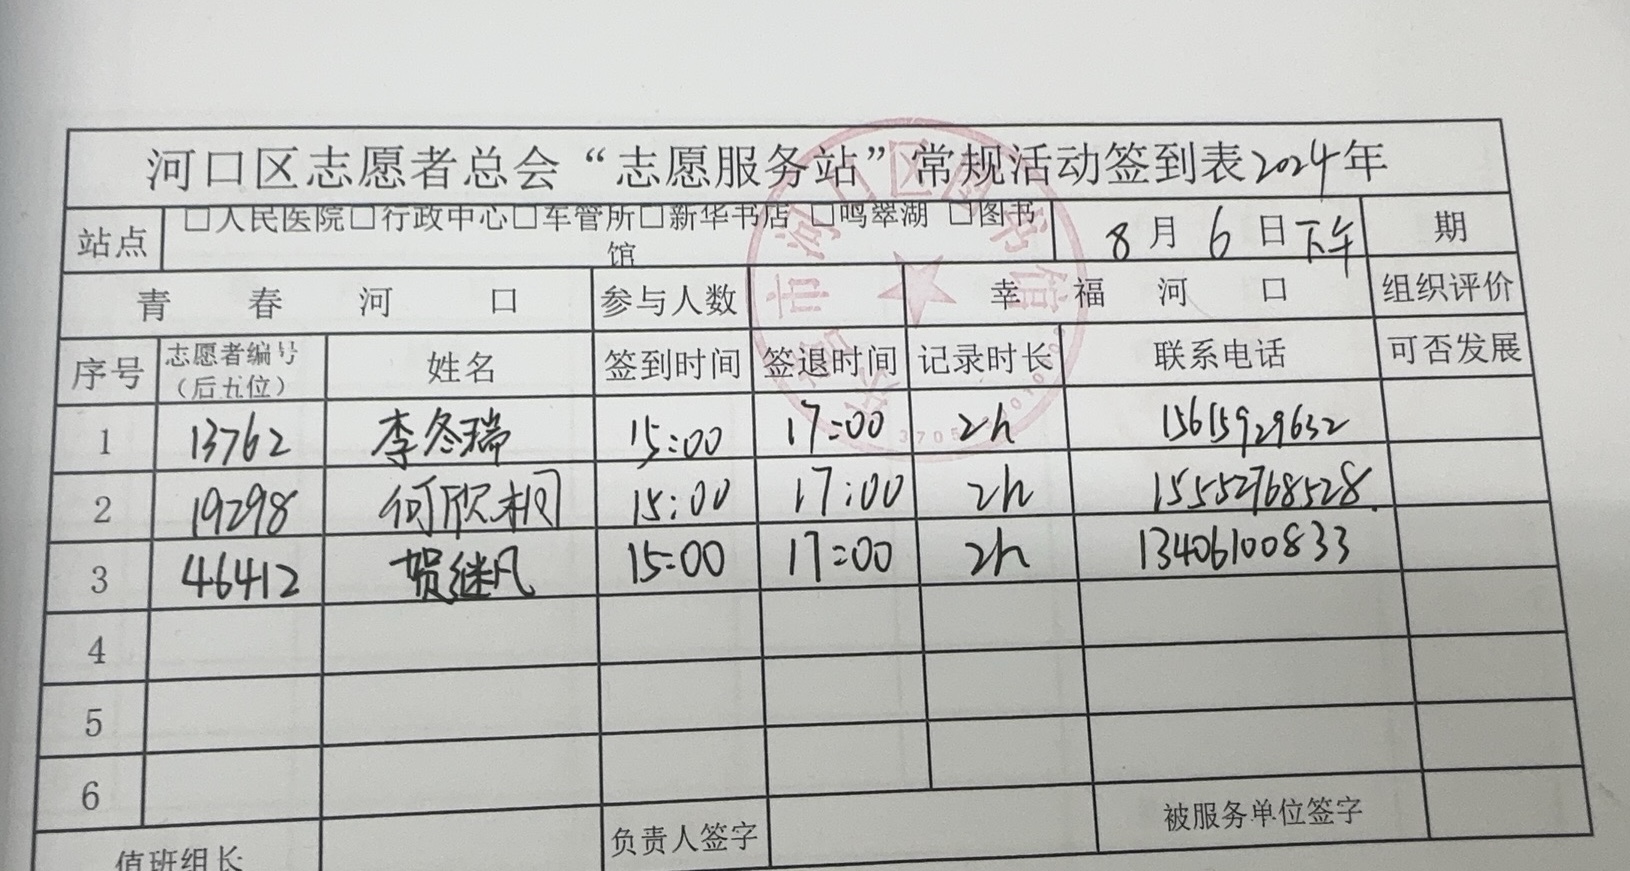 河口区志愿者总会“志愿服务站”常规活动签到表2024年
站点 □人民医院□行政中心□车管所□新华书店 □鸣翠湖 □图书馆 8月6日下午 期
青春河口 参与人数 幸福河口 组织评价
序号 志愿者编号（后五位） 姓名 签到时间 签退时间 记录时长 联系电话 可否发展
1 13762 李冬瑞 15:00 17:00 2h 15615929632
2 19298 何欣桐 15:00 17:00 2h 15552768528
3 46412 贺继凡 15:00 17:00 2h 13406100833
4
5
6
值班组长 负责人签字 被服务单位签字